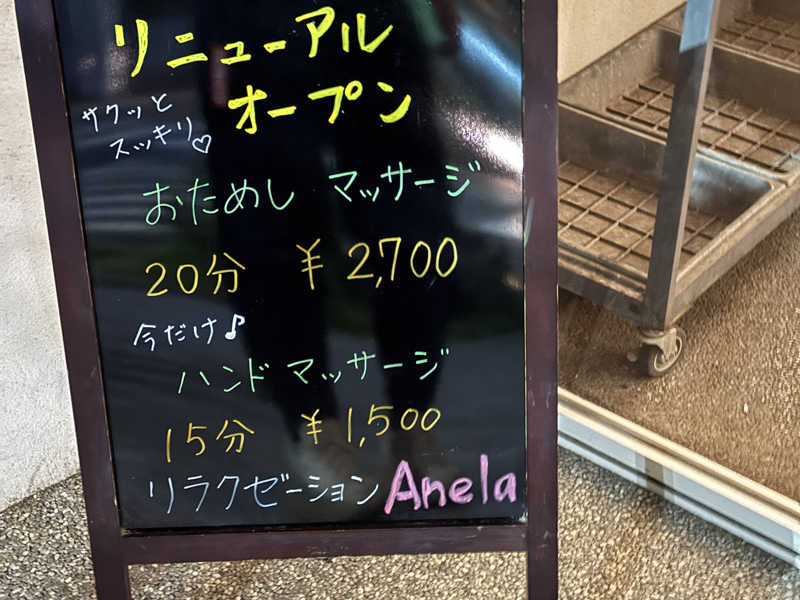 リニューアル
オープン
サクッと
スッキリ♡
おためし マッサージ
20分 ¥2,700
今だけ♪
ハンドマッサージ
15分 ¥1,500
リラクゼーション Anela